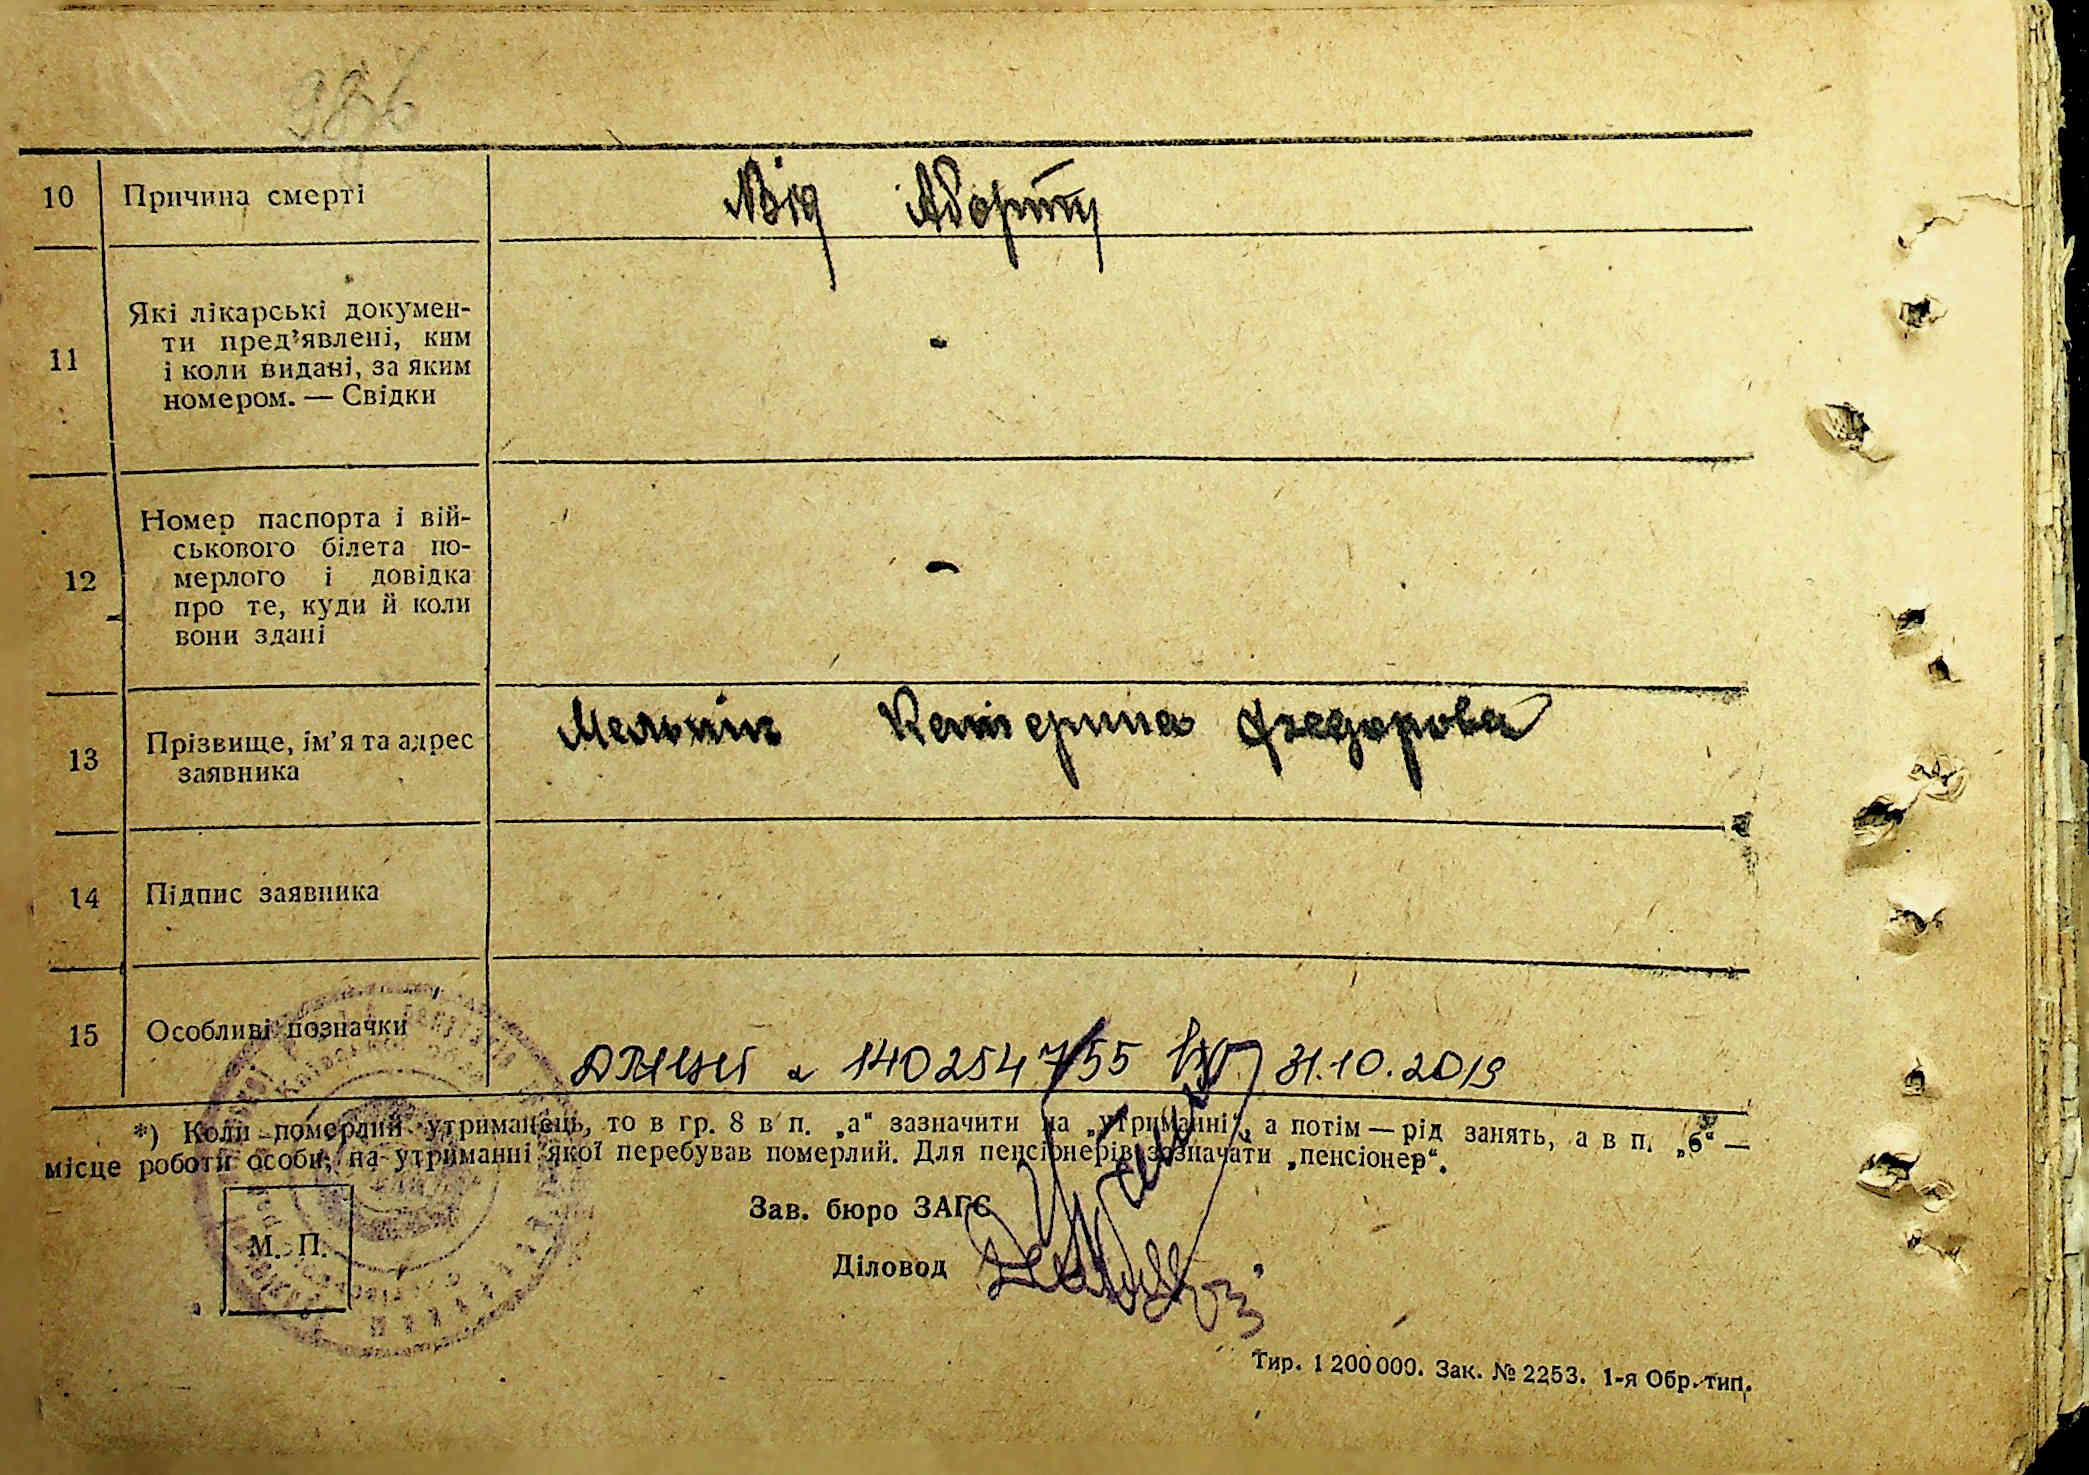 10 Причина смерті Від Аборту
11 Які лікарські докумен-
ти пред'явлені, ким
і коли видані, за яким
номером. — Свідки -
12 Номер паспорта і вій-
ськового білета по-
мерлого і довідка
про те, куди й коли
вони здані -
13 Прізвище, ім'я та адрес Мельник Катерина Федорова
заявника
14 Підпис заявника
15 Особливі позначки
140254755 31.10.2019
*) Коли померлий утриманець, то в гр. 8 в п. „а“ зазначити на „утриманні“, а потім — рід занять, а в п. „б“ —
місце роботи особи, на утриманні якої перебував померлий. Для пенсіонерів зазначати „пенсіонер“.
Зав. бюро ЗАГС
М. П.
Діловод
Тир. 1 200 000. Зак. № 2253. 1-я Обр. тип.